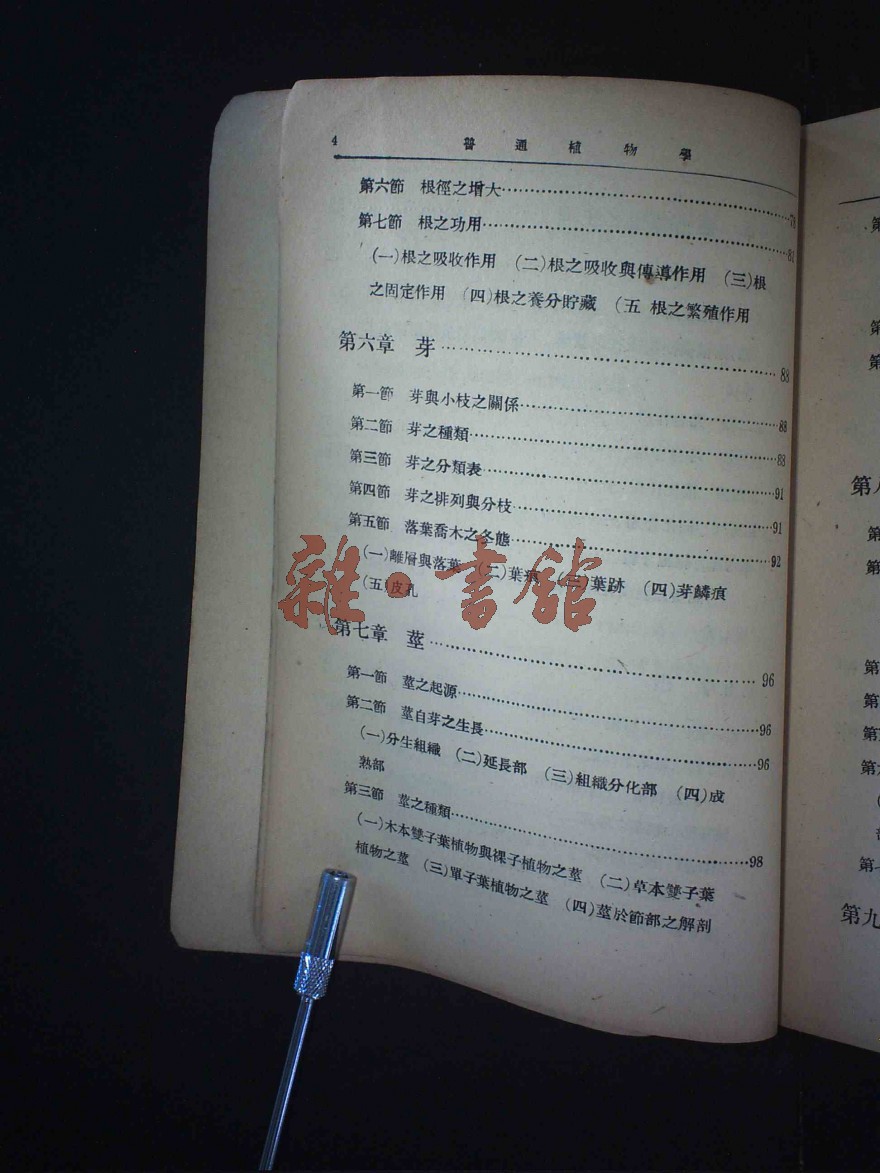 4 普通植物學
第六節 根徑之增大……78
第七節 根之功用……81
(一)根之吸收作用 (二)根之吸收與傳導作用 (三)根
之固定作用 (四)根之養分貯藏 (五 根之繁殖作用
第六章 芽……88
第一節 芽與小枝之關係……88
第二節 芽之種類……88
第三節 芽之分類表……91
第四節 芽之排列與分枝……91
第五節 落葉喬木之冬態……92
(一)離層與落葉 (二)葉痕 (三)葉跡 (四)芽鱗痕
(五)皮孔
雜·書館
第七章 莖……96
第一節 莖之起源……96
第二節 莖自芽之生長……96
(一)分生組織 (二)延長部 (三)組織分化部 (四)成
熟部
第三節 莖之種類……98
(一)木本雙子葉植物與裸子植物之莖 (二)草本雙子葉
植物之莖 (三)單子葉植物之莖 (四)莖於節部之解剖
第
第
第
第八
第
第
第
第
第
第
第
第九